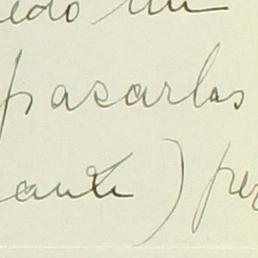 edo un
pasarlas
ante) per